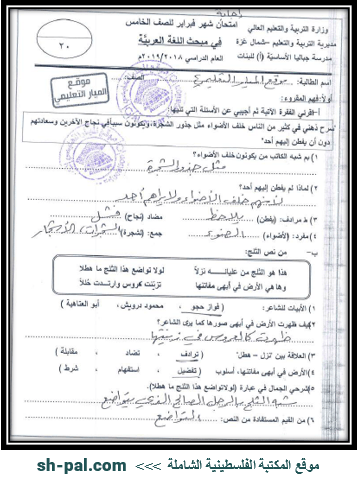 إجابة
وزارة التربية والتعليم العالي
امتحان شهر فبراير للصف الخامس
مديرية التربية والتعليم –شمال غزة
في مبحث اللغة العربيّة
٢٠
مدرسة جباليا الأساسيّة (أ) للبنات
العام الدراسي ٢٠١٨/٢٠١٩م
موقع المنار التعليمي
اسم الطالبة:
الصف
أولاً:-فهم المقروء:
أ-اقرئي الفقرة الآتية ثم أجيبي عن الأسئلة التي تليها:
تسرح ذهني في كثير من الناس خلف الأضواء مثل جذور الشجرة، ويكونون سببا في نجاح الآخرين وسعادتهم
دون أن يفطن إليهم أحد"
١) بم شبه الكاتب من يكونون خلف الأضواء؟
مثل جذور الشجرة
٢) لماذا لم يفطن إليهم أحد؟
لأنهم خلف الأضواء ولا يراهم أحد
٣) مرادف: (يفطن) يلاحظ مضاد (نجاح) فشل
٤) مفرد: (الأضواء) الضوء جمع: (شجرة)
ب- من نص الثلج:
هذا هو الثلج من عليائـــه نزلاً لولا تواضع هذا الثلج ما هطلا
وها هي الأرض في أبهى مفاتنها تزيّنت كعروس وارتدت حُللا
١) الأبيات للشاعر: ( فواز حجو , محمود درويش , أبو العتاهية )
٢)كيف ظهرت الأرض في أبهى صورها كما يرى الشاعر؟
ظهرت كالعروس في زينتها
٣) العلاقة بين (نزل – هطل) ( ترادف , تضاد , مقابلة )
٤)الأرض في أبهى مفاتنها، أسلوب ( تفضيل , استفهام , شرط )
٥)اشرحي الجمال في عبارة (لولا تواضع هذا الثلج ما هطلا).
شبه الثلج بالرجل الصالح الذي يتواضع
٦) من القيم المستفادة من النص: التواضع
موقع المكتبة الفلسطينية الشاملة <<< sh-pal.com